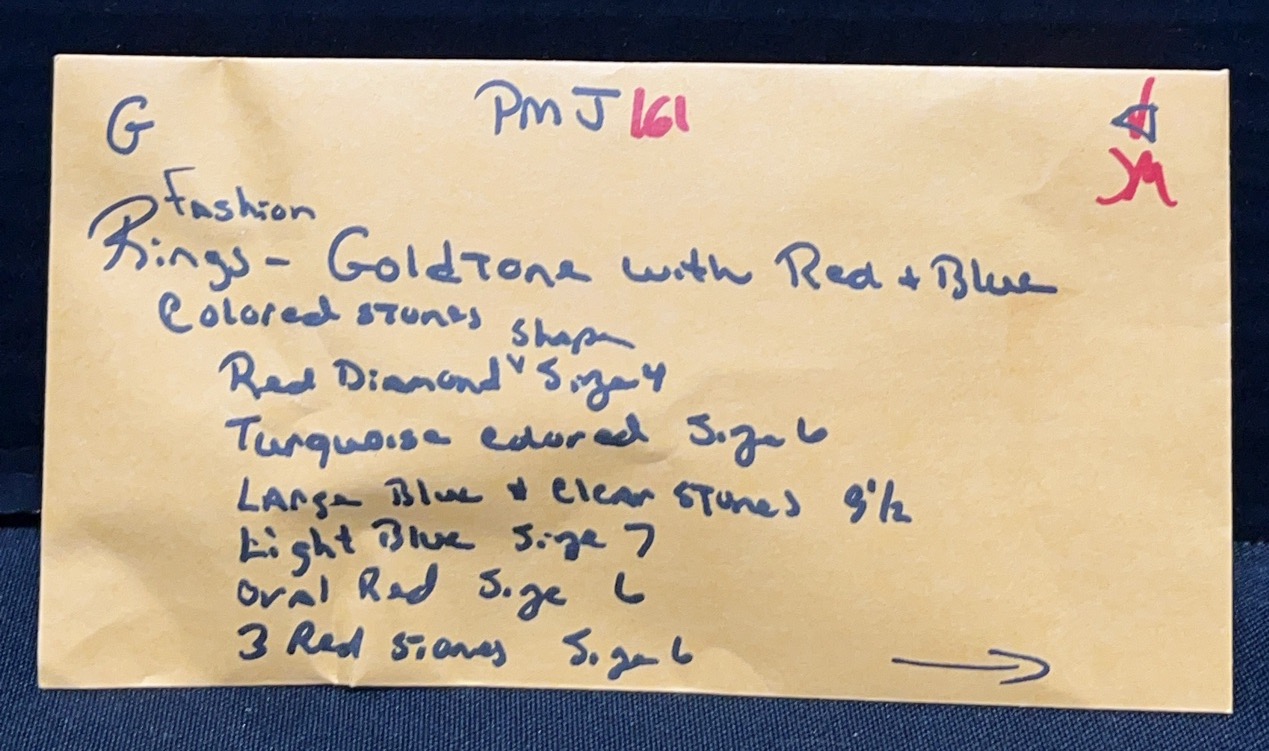 G PMJ 161
Fashion
Rings - Goldtone with Red + Blue
Colored stones
Red Diamond shape Size 4
Turquoise colored Size 6
Large Blue + Clear stones 9 1/2
Light Blue Size 7
Oval Red Size 6
3 Red stones Size 6